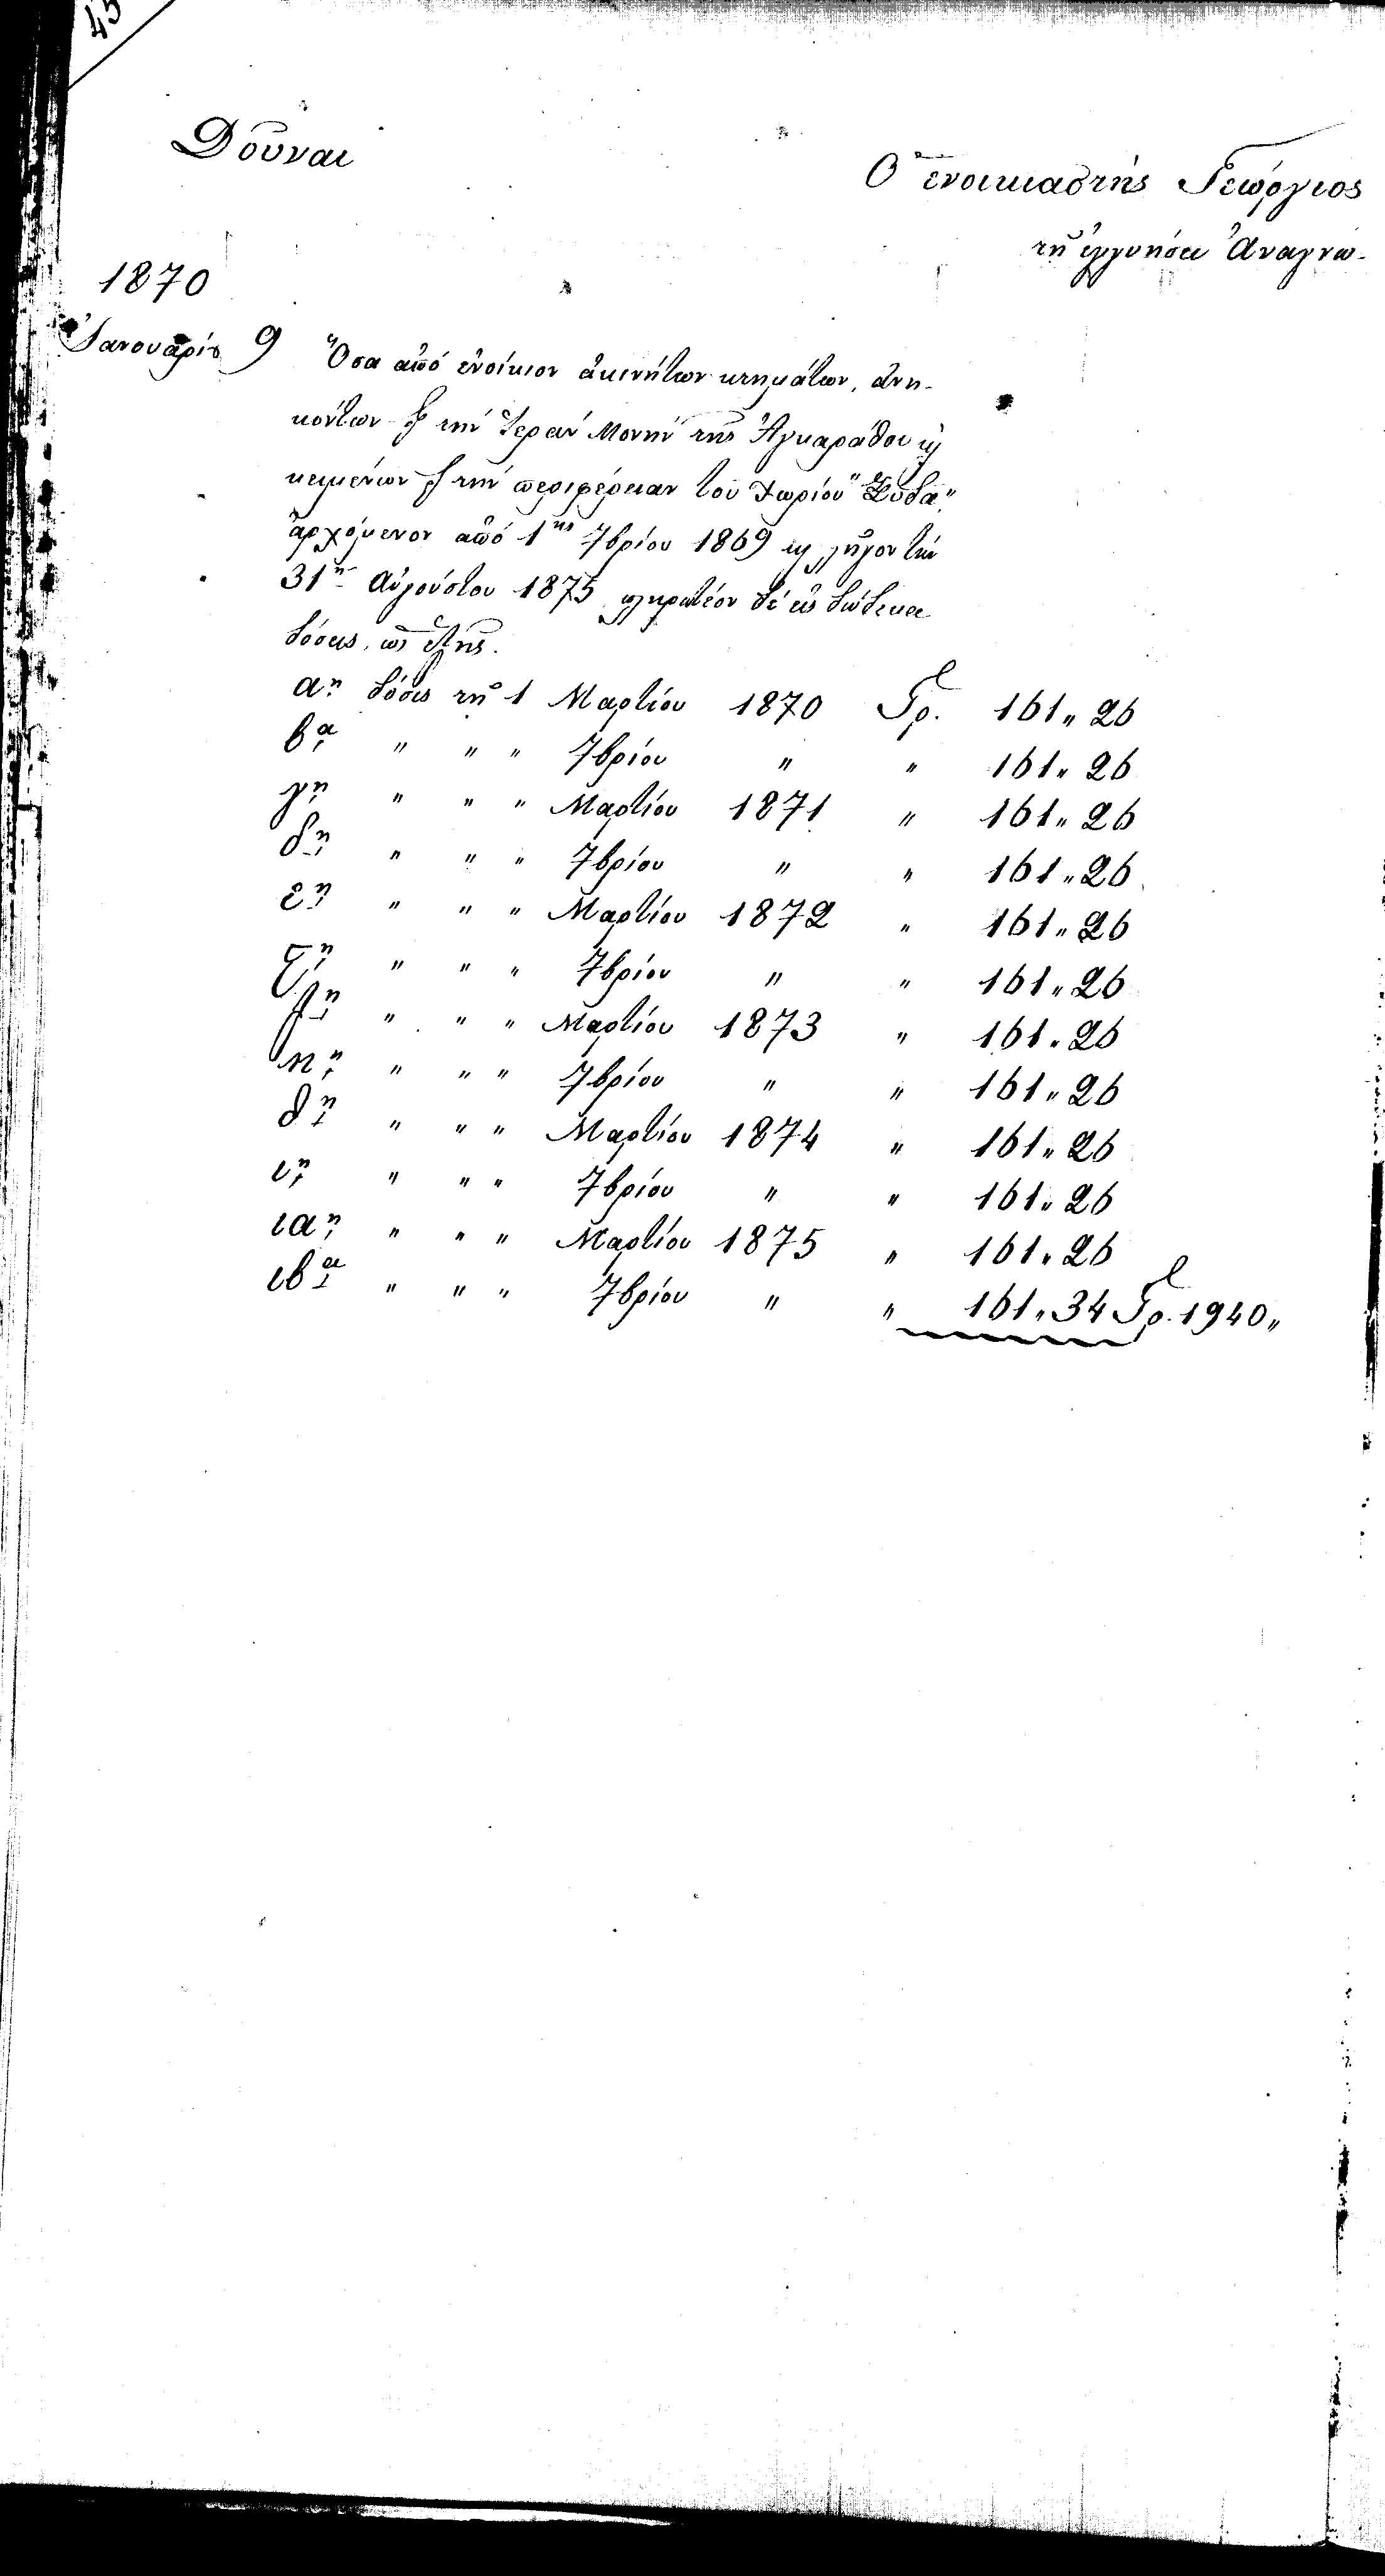 45
Δοῦναι
Ὁ ἐνοικιαστὴς Γεώργιος
τῇ ἐγγυήσει Ἀναγνώ-
1870
Ἰανουαρίου 9 Ὅσα ἀπό ἐνοίκιον ἀκινήτων κτημάτων, ἀνη-
κόντων εἰς τήν Ἱεράν Μονήν τῆς Ἀγκαράθου καὶ
κειμένων εἰς τήν περιφέρειαν τοῦ χωρίου "Σύδα"
ἀρχόμενον ἀπό 1ης 7βρίου 1869 καὶ λῆγον τήν
31η Αὐγούστου 1875 πληρωτέον δέ εἰς δώδεκα
δόσεις, ὡς ἑξῆς.
αη δόσις τῇ 1 Μαρτίου 1870 Γρ. 161 " 26
βα " " " 7βρίου " " 161 " 26
γη " " " Μαρτίου 1871 " 161 " 26
δη " " " 7βρίου " " 161 " 26
εη " " " Μαρτίου 1872 " 161 " 26
ϛη " " " 7βρίου " " 161 " 26
ζη " " " Μαρτίου 1873 " 161 " 26
ηη " " " 7βρίου " " 161 " 26
θη " " " Μαρτίου 1874 " 161 " 26
ιη " " " 7βρίου " " 161 " 26
ιαη " " " Μαρτίου 1875 " 161 " 26
ιβα " " " 7βρίου " " 161 " 34 Γρ. 1940 "